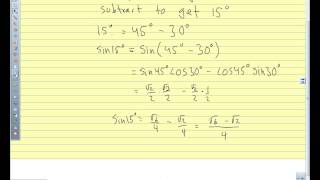 subtract to get 15°
15° = 45° - 30°
sin15° = sin(45° - 30°)
= sin45°cos30° - cos45°sin30°
= √2/2 · √3/2 - √2/2 · 1/2
sin15° = √6/4 - √2/4 = √6 - √2/4